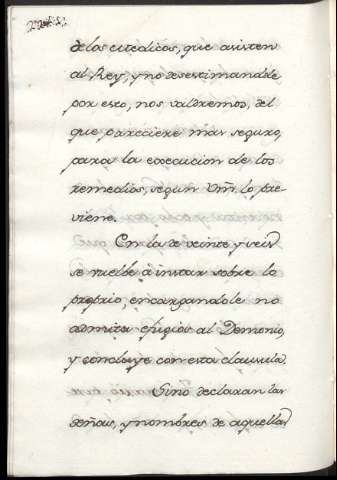 de los Medicos, que asisten
al Rey, y no desestimandole
por esto, nos valdremos, del
que pareciere mas seguro,
para la execucion de los
remedios, segun Vm̃. lo pre-
viene.
En la de veinte y seis
se vuelbe à instar sobre lo
proprio, encargandole no
admita efugios al Demonio,
y concluye con esta clausula.
Sino declaran las
señas, y nombres de aquellas